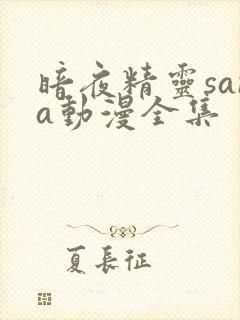 暗夜精靈sar
a動漫全集
夏長征